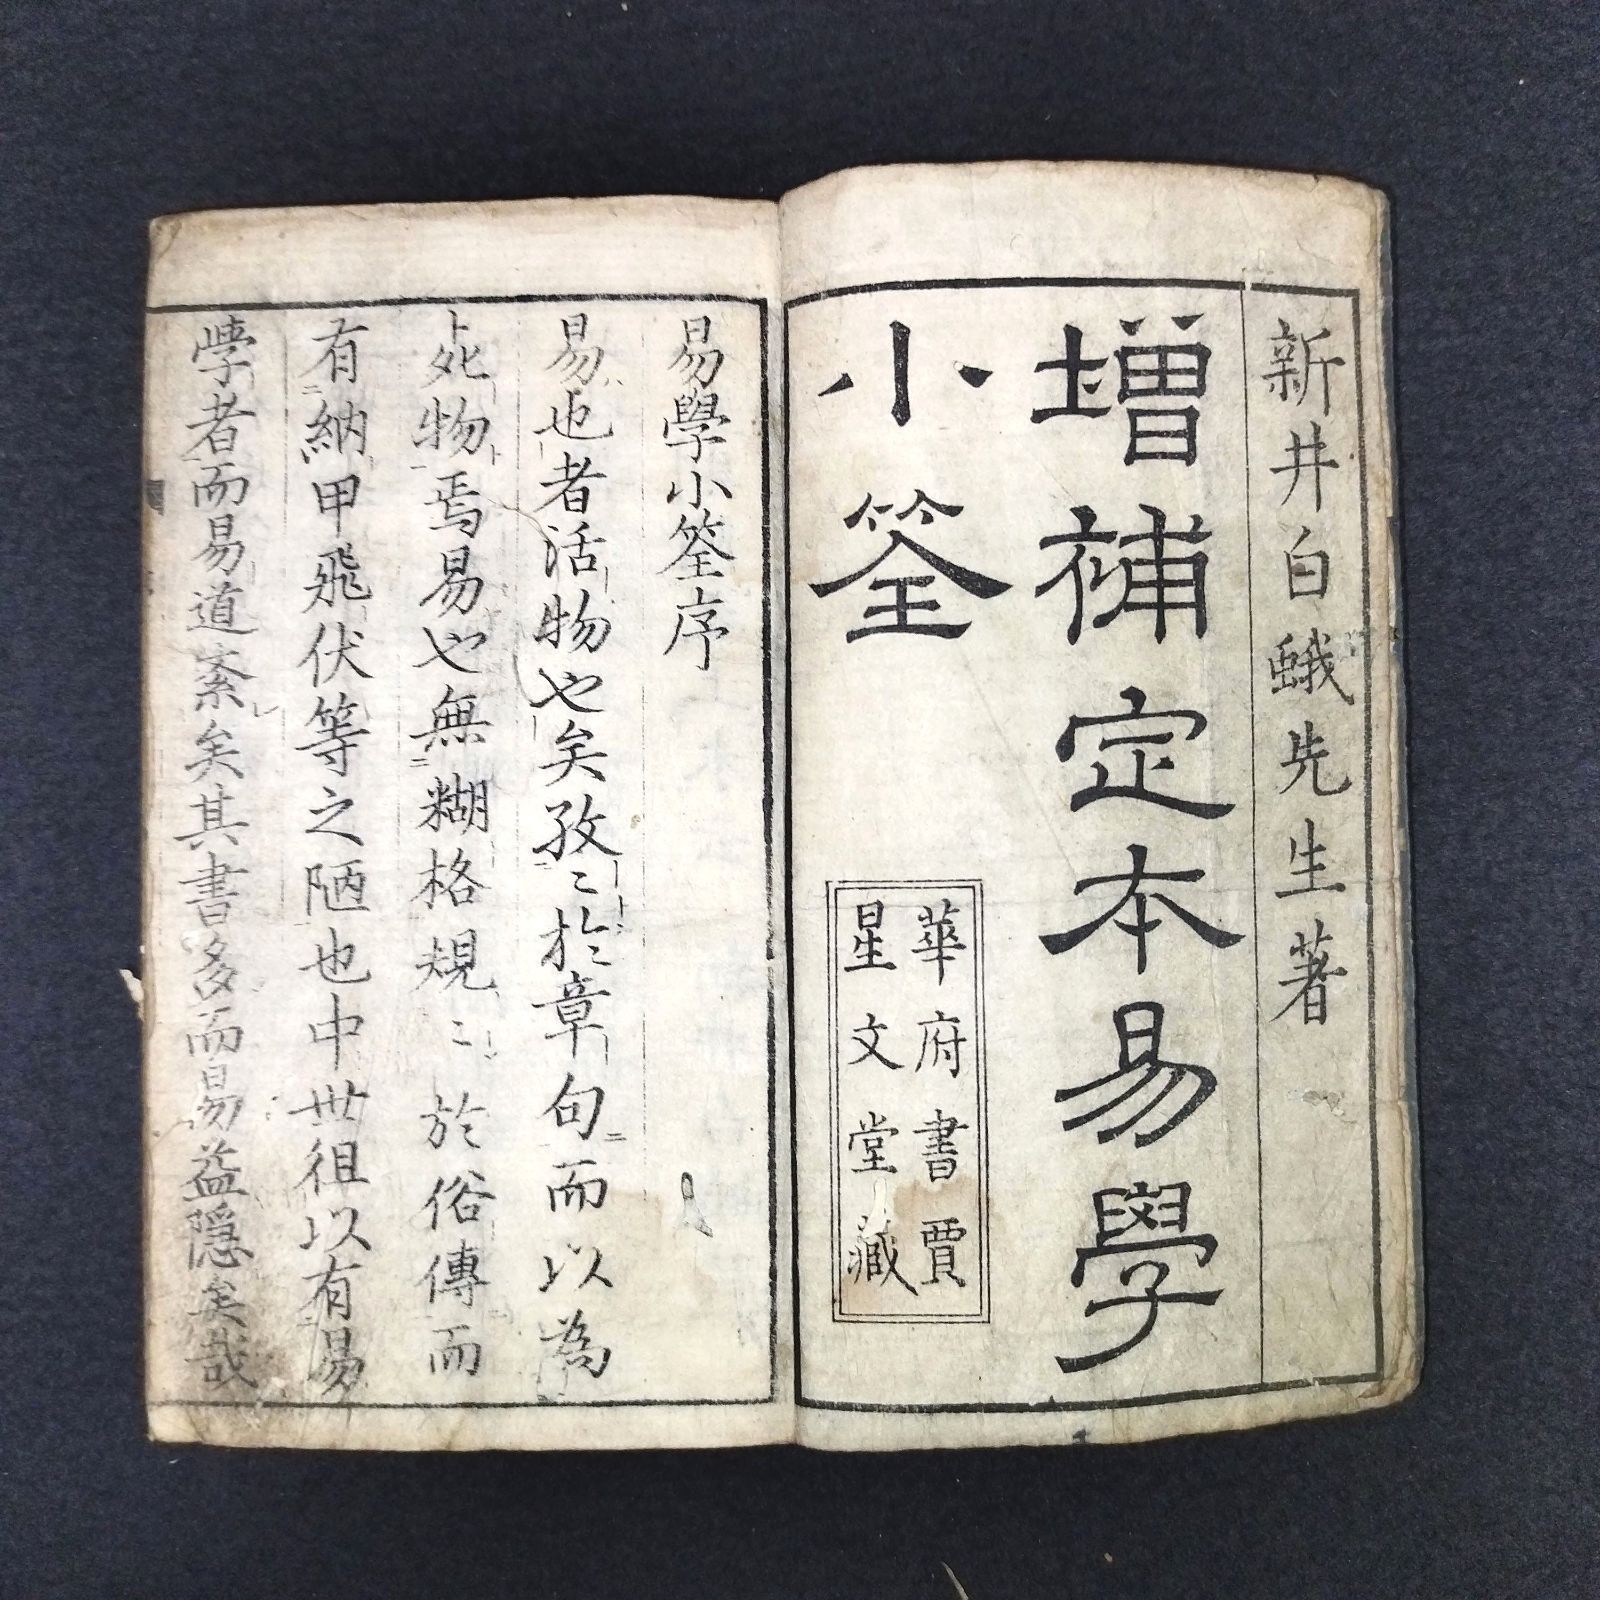 新井白蛾先生著
增補定本易學
小筌
華府書賈
星文堂藏
易學小筌序
易也者活物也矣孜〻於章句而以為
死物焉易也無糊格規〻於俗傳而
有納甲飛伏等之陋也中世徂以有易
學者而易道紊矣其書多而易益隱矣哉